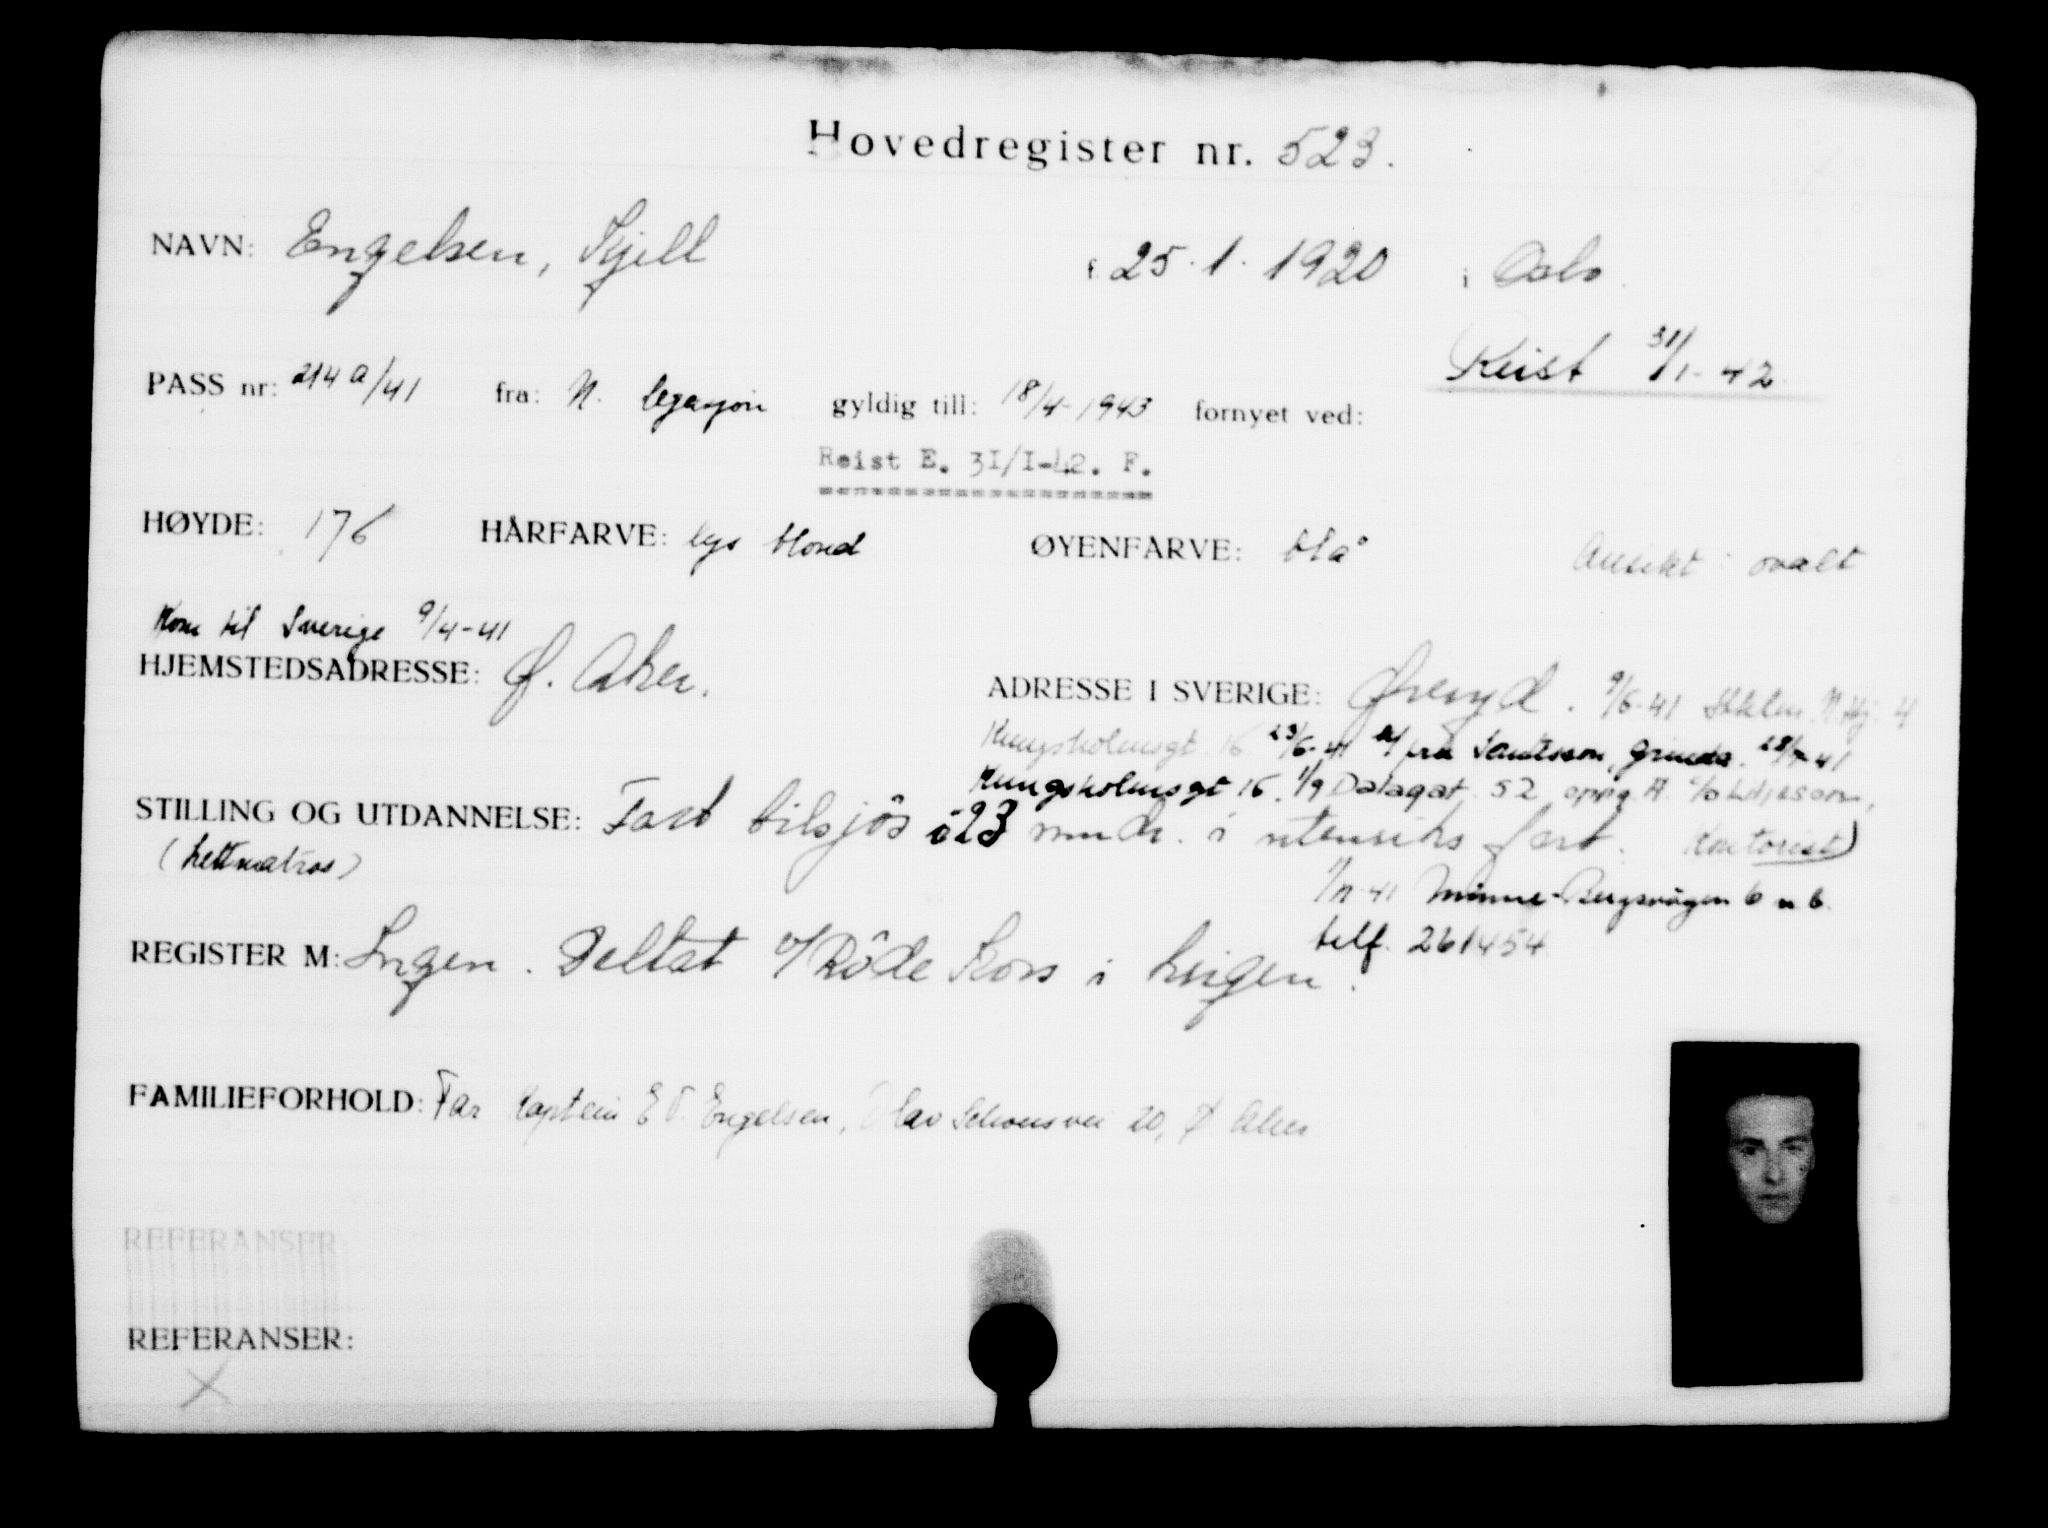 Hovedregister nr. 523.
NAVN: Engelsen, Kjell f. 25.1.1920 i Oslo.
Reist 31/1-42
PASS nr: 214 a/41 fra: N. legasjon gyldig till: 18/4-1943 fornyet ved:
Reist E. 3I/I-42. F.
HØYDE: 176 HÅRFARVE: lys blond ØYENFARVE: blå Ansikt: ovalt
Kom til Sverige 9/4-41
HJEMSTEDSADRESSE: Ø. Aker. ADRESSE I SVERIGE: Øreryd. 9/6-41 Sthlm.
Kungsholmsgt. 16 23/6-41
Kungsholmsgt 16. 1/9 Dalagat. 52 oppg. A. c/o Liljeson,
STILLING OG UTDANNELSE: Fart tilsjøs i 23 mndr. i utenriks fart. Kontorist)
(Lettmatros)
1/11-41 Minnebergsvägen 6 n.b.
telf. 261454
REGISTER M: Ingen. Deltat v/Røde Kors i krigen.
FAMILIEFORHOLD: Far Kaptein E Engelsen, Olav Schousvei 20, Ø. Aker
REFERANSER:
REFERANSER:
X